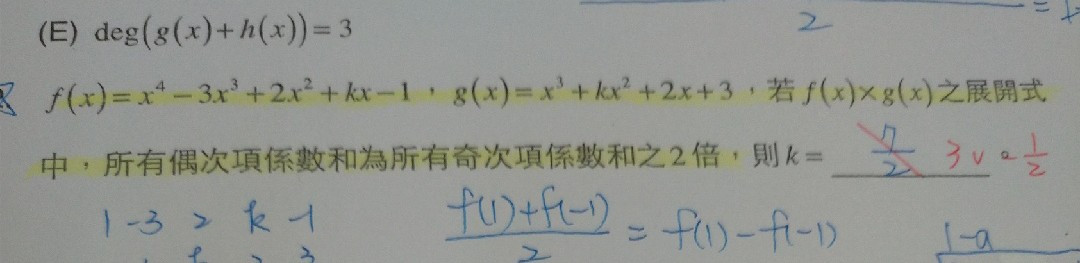 (E) deg(g(x)+h(x))=3
2
f(x)=x⁴−3x³+2x²+kx−1,g(x)=x³+kx²+2x+3,若f(x)×g(x)之展開式
中,所有偶次項係數和為所有奇次項係數和之2倍,則k= 7/2 3
1 -3 2 k -1
(f(1)+f(-1))/2 = f(1)-f(-1)
1-a